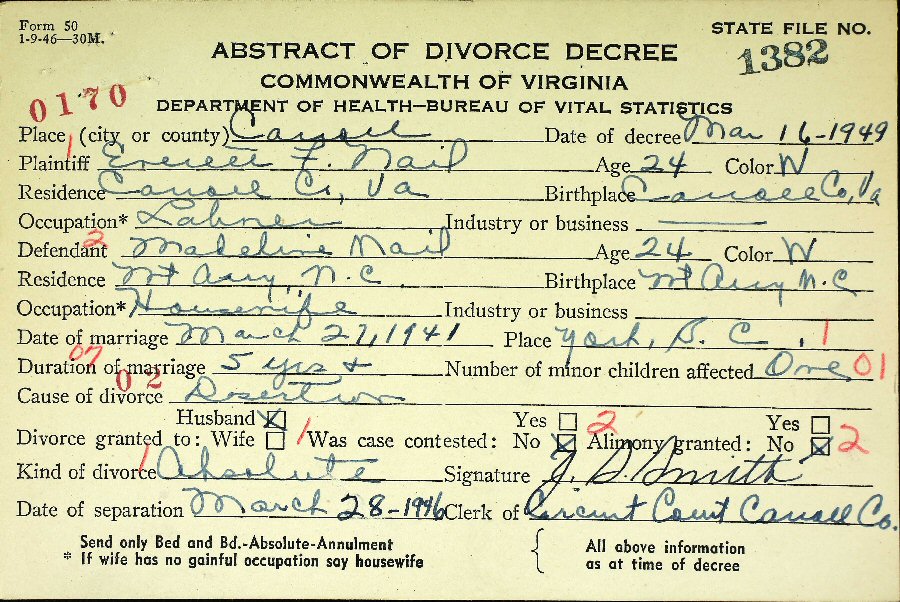 Form 50
1-9-46—30M.
STATE FILE NO.
1382
ABSTRACT OF DIVORCE DECREE
COMMONWEALTH OF VIRGINIA
0170
DEPARTMENT OF HEALTH—BUREAU OF VITAL STATISTICS
Place (city or county) Carroll Date of decree Mar 16-1949
1
Plaintiff Everett F. Nail Age 24 Color W
Residence Carroll Co, Va Birthplace Carroll Co, Va
Occupation* Laborer Industry or business ——
2
Defendant Madeline Nail Age 24 Color W
Residence Mt Airy, N.C Birthplace Mt Airy N.C
Occupation* Housewife Industry or business
Date of marriage March 27, 1941 Place York, S.C. 1
07
Duration of marriage 5 yrs + Number of minor children affected One 01
02
Cause of divorce Desertion
Husband ☒ Yes ☐ 2 Yes ☐
Divorce granted to: Wife ☐ 1 Was case contested: No ☒ Alimony granted: No ☒ 2
Kind of divorce 1 Absolute Signature J. D. Smith
Date of separation March 28-1946 Clerk of Circuit Court Carroll Co.
Send only Bed and Bd.-Absolute-Annulment
* If wife has no gainful occupation say housewife
All above information
as at time of decree